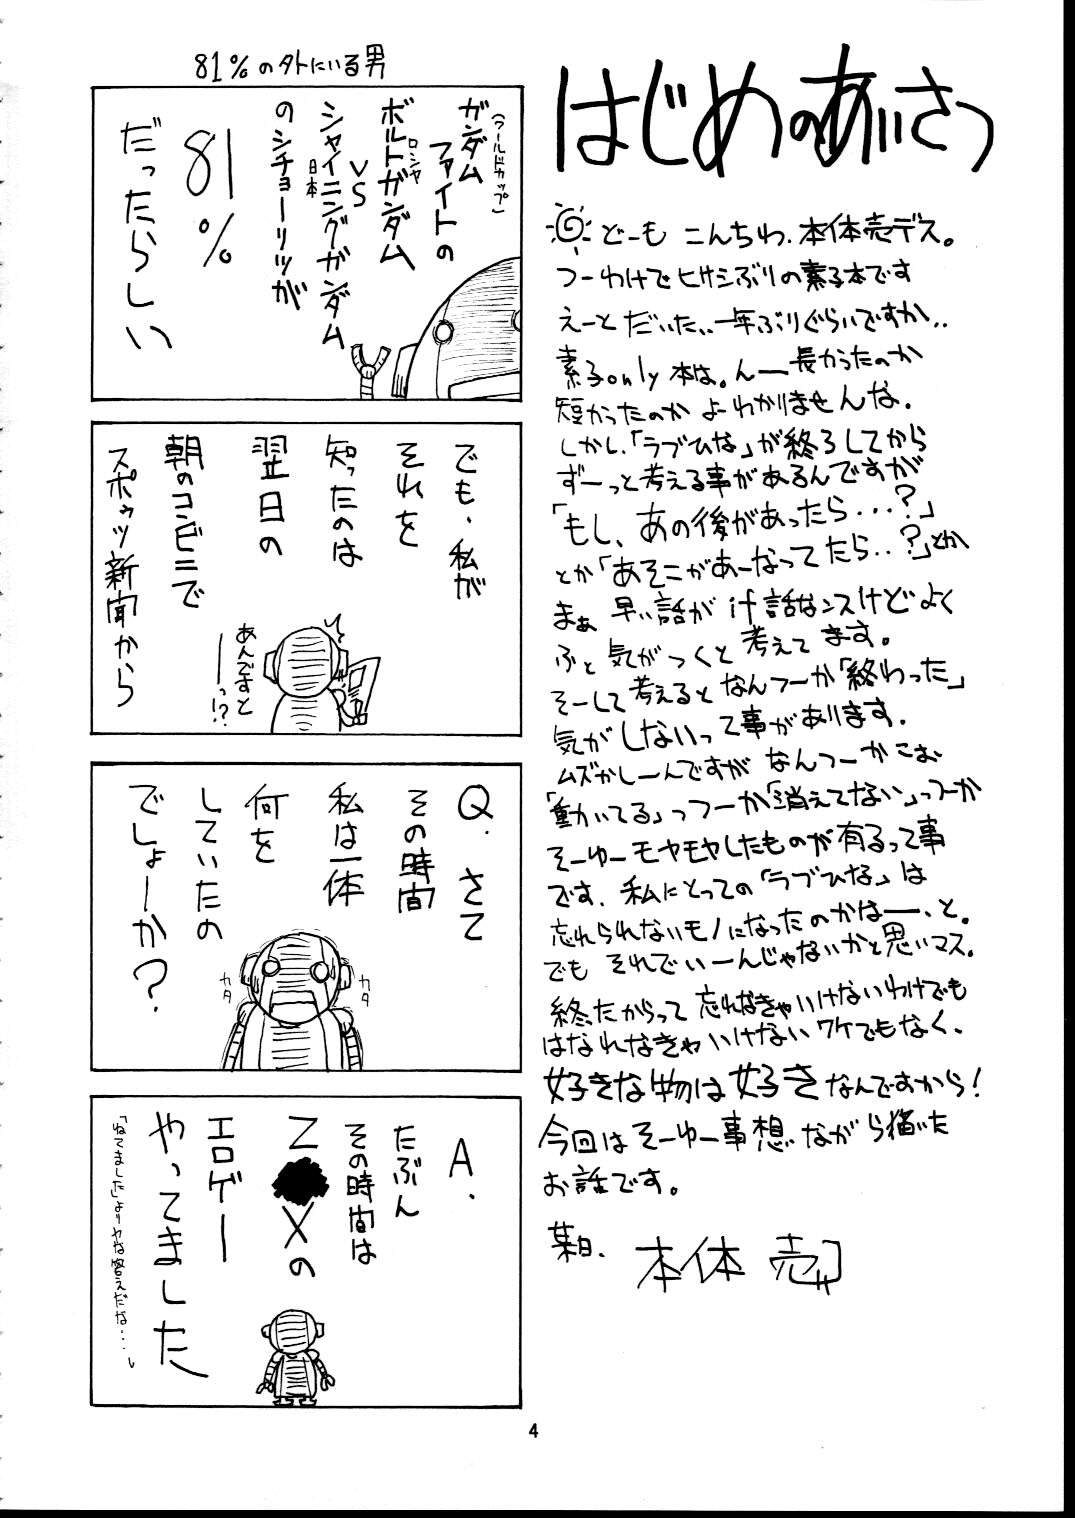 はじめのあいさつ
どーも こんちわ、本体売デス。
つーわけでヒサシぶりの素子本です
えーと だいたい、一年ぶりぐらいですか、、
素子only本は。んー長かったのか
短かったのか よーわかりませんな.
しかし、「ラブひな」が終了してから
ずーっと考える事があるんですが
「もし、あの後があったら...?」
とか「あそこがあーなってたら..?」とか
まぁ 早い話が if話なンスけどよく
ふと気がつくと考えてます。
そーして考えるとなんつーか「終わった」
気がしないって事があります.
ムズかしーんですが なんつーかこお
「動いてる」っつーか「消えてない」っつーか
そーゆーモヤモヤしたものが有るって事
です. 私にとっての「ラブひな」は
忘れられないモノになったのかなー、と。
でも それでいーんじゃないかと思いマス。
終ったからって 忘れなきゃいけないわけでも
はなれなきゃいけないワケでもなく、
好きな物は好きなんですから!
今回はそーゆー事想いながら描いた
お話です。
某日、 本体 売
81%の外にいる男
(ワールドカップ)
ガンダム
ファイトの
ボルトガンダム
ロシア
VS
シャイニングガンダム
日本
のシチョーリツが
81%
だったらしい
でも、私が
それを
知ったのは
翌日の
朝のコンビニで
スポゥツ新聞から
あんですと
ーっ!?
Q.さて
その時間
私は一体
何を
していたの
でしょーか?
カタ
カタ
A.
たぶん
その時間は
Z
Xの
エロゲー
やってました
「ねてました」よりヤな答えだな...
4